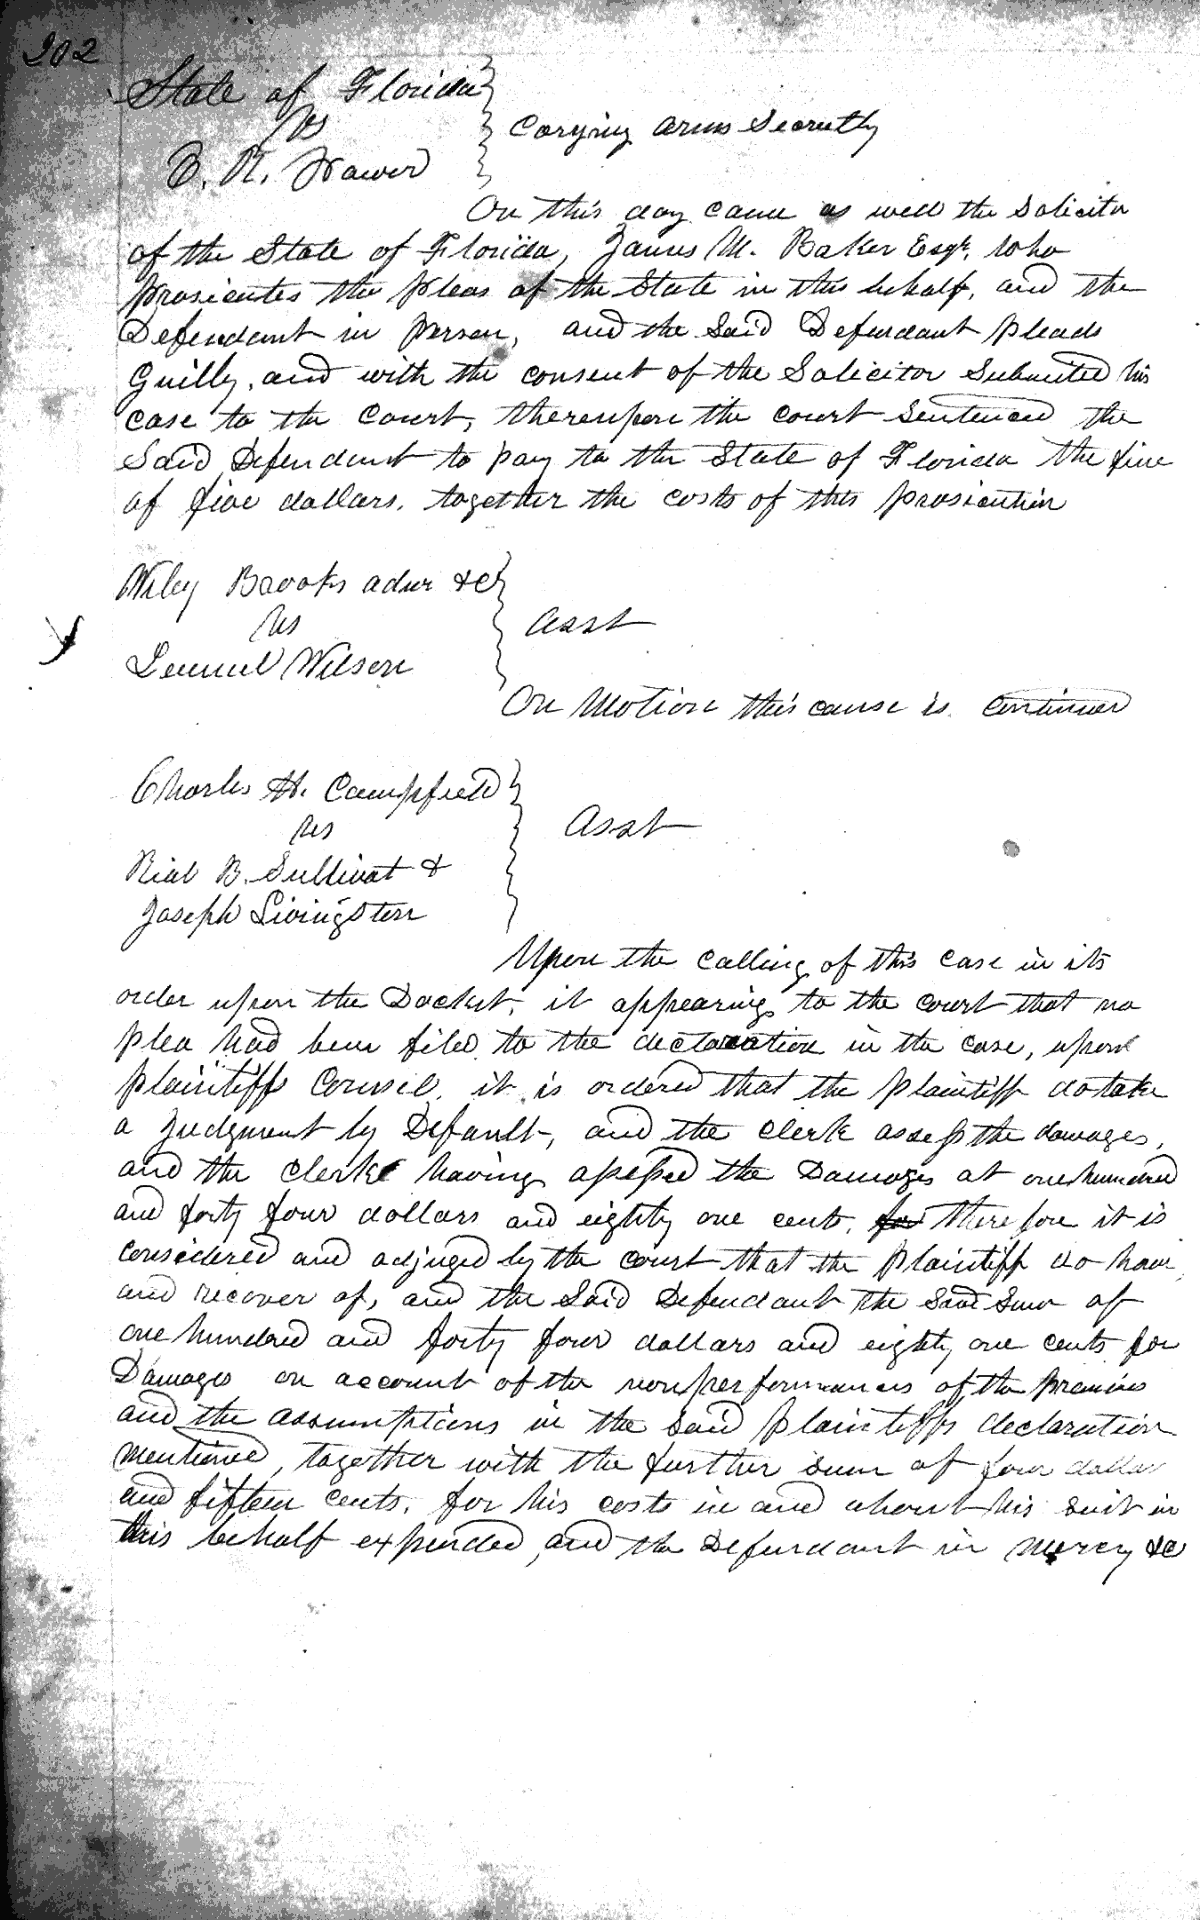 202
State of Florida
vs
Carying arms Secretly
On this day came as well the Solicitor
of the State of Florida, James M. Baker Esqr. who
prosicutes the pleas of the State in this behalf, and the
Defendant in person, and the Said Defendant pleads
Guilly, and with the consent of the Solicitor Submitted his
case to the Court, thereupon the court Sentenced the
Said Defendant to pay to the State of Florida the fine
of five dollars, together the costs of this prosicution
Wiley Brooks admr &c
vs
Asst
Lemuel Wilson
On Motion this cause is continued
Charles H. Campfield
vs
Asst
Rial B. Sullivat &
Joseph Livingston
Upon the calling of this case in its
order upon the Docket, it appearing to the court that no
plea had been filed to the declaration in the case, upon
plaintiff Counsel, it is ordered that the plaintiff do take
a Judgment by Default, and the clerk assess the damages,
and the clerk having assessed the Damages at one hundred
and forty four dollars and eighty one cents, therefore it is
considered and adjuged by the court that the plaintiff do have
and recover of, and the Said Defendant the said Sum of
one hundred and forty four dollars and eighty one cents for
Damages on account of the nonperformances of the premises
and the assumptions in the said plaintiffs declaration
mentioned, together with the further sum of four dollars
and fifteen cents, for his costs in and about his suit in
this behalf expended, and the Defendant in mercy &c